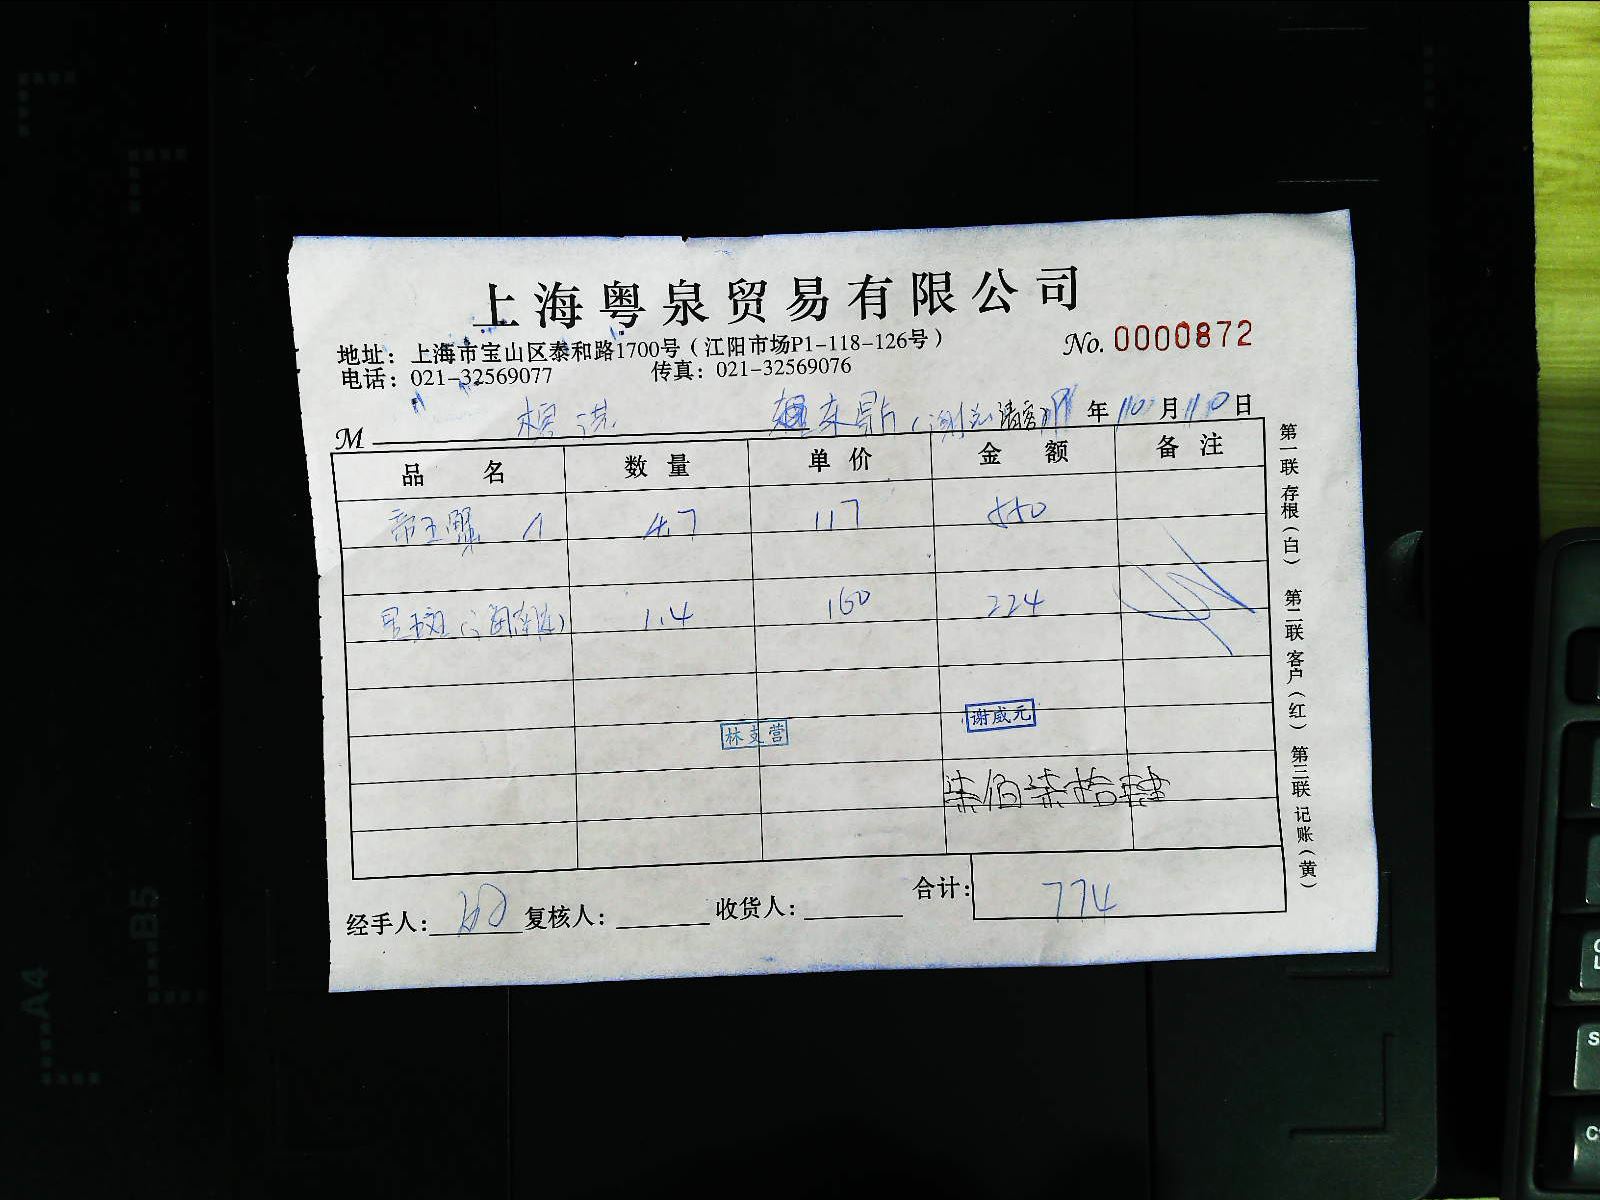 上海粤泉贸易有限公司
地址：上海市宝山区泰和路1700号（江阳市场P1-118-126号）
No. 0000872
电话：021-32569077 传真：021-32569076
M 年 月 日
品名 数量 单价 金额 备注
帝王蟹 4.7 117 550
1.4 160 224
林支营 谢威元
柒佰柒拾肆
合计： 774
经手人： 复核人： 收货人：
第一联 存根（白） 第二联 客户（红） 第三联 记账（黄）
B5
A4